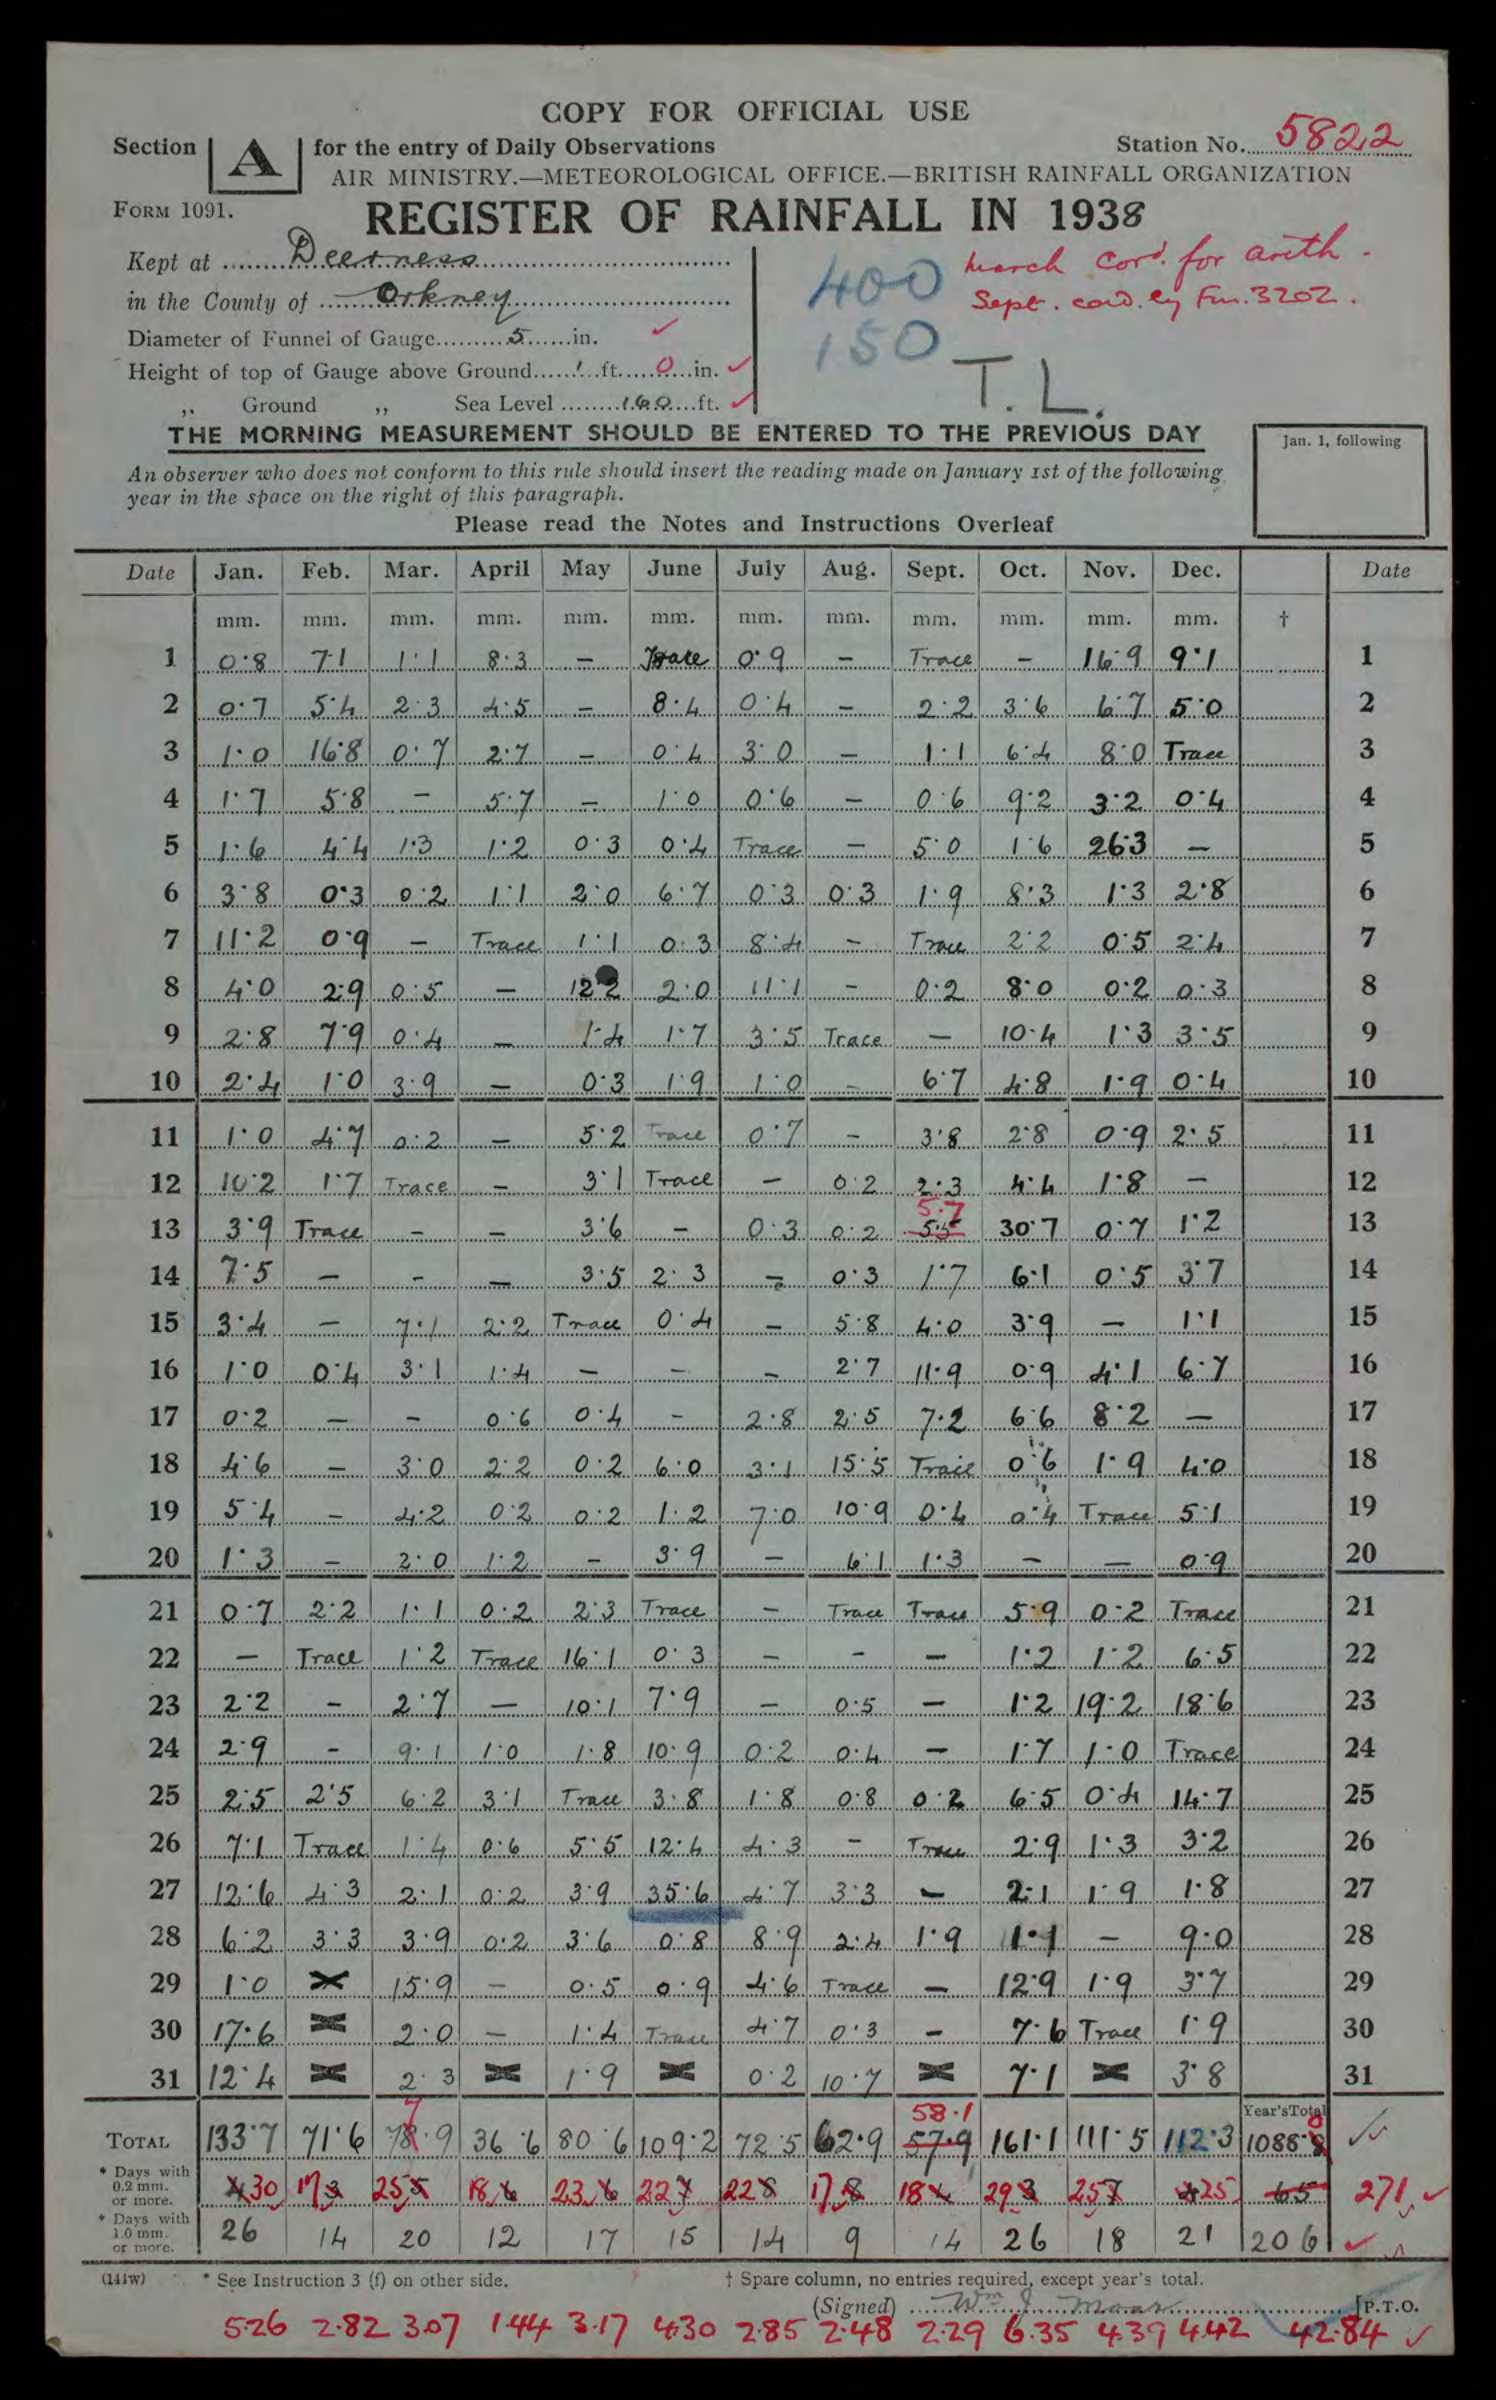 COPY FOR OFFICIAL USE
Section A for the entry of Daily Observations Station No. 5822
AIR MINISTRY.—METEOROLOGICAL OFFICE.—BRITISH RAINFALL ORGANIZATION
FORM 1091. REGISTER OF RAINFALL IN 1938
Kept at Deerness
in the County of Orkney
Diameter of Funnel of Gauge 5 in. ✓
Height of top of Gauge above Ground 1 ft. 0 in. ✓
,, Ground ,, Sea Level 160 ft. ✓
400
150
March Cord. for arith.
Sept. cord. by Fm. 3202.
T.L.
THE MORNING MEASUREMENT SHOULD BE ENTERED TO THE PREVIOUS DAY
An observer who does not conform to this rule should insert the reading made on January 1st of the following
year in the space on the right of this paragraph.
Jan. 1, following
Please read the Notes and Instructions Overleaf
Date Jan. Feb. Mar. April May June July Aug. Sept. Oct. Nov. Dec. Date
mm. mm. mm. mm. mm. mm. mm. mm. mm. mm. mm. mm. †
1 0.8 7.1 1.1 8.3 – Trace 0.9 – Trace – 16.9 9.1 1
2 0.7 5.4 2.3 4.5 – 8.4 0.4 – 2.2 3.6 6.7 5.0 2
3 1.0 16.8 0.7 2.7 – 0.4 3.0 – 1.1 6.4 8.0 Trace 3
4 1.7 5.8 – 5.7 – 1.0 0.6 – 0.6 9.2 3.2 0.4 4
5 1.6 4.4 1.3 1.2 0.3 0.4 Trace – 5.0 1.6 26.3 – 5
6 3.8 0.3 0.2 1.1 2.0 6.7 0.3 0.3 1.9 8.3 1.3 2.8 6
7 11.2 0.9 – Trace 1.1 0.3 8.4 – Trace 2.2 0.5 2.4 7
8 4.0 2.9 0.5 – 12.2 2.0 11.1 – 0.2 8.0 0.2 0.3 8
9 2.8 7.9 0.4 – 1.4 1.7 3.5 Trace – 10.4 1.3 3.5 9
10 2.4 1.0 3.9 – 0.3 1.9 1.0 – 6.7 4.8 1.9 0.4 10
11 1.0 4.7 0.2 – 5.2 Trace 0.7 – 3.8 2.8 0.9 2.5 11
12 10.2 1.7 Trace – 3.1 Trace – 0.2 2.3 4.4 1.8 – 12
5.7
13 3.9 Trace – – 3.6 – 0.3 0.2 5.5 30.7 0.7 1.2 13
14 7.5 – – – 3.5 2.3 – 0.3 1.7 6.1 0.5 3.7 14
15 3.4 – 7.1 2.2 Trace 0.4 – 5.8 4.0 3.9 – 1.1 15
16 1.0 0.4 3.1 1.4 – – – 2.7 11.9 0.9 4.1 6.7 16
17 0.2 – – 0.6 0.4 – 2.8 2.5 7.2 6.6 8.2 – 17
18 4.6 – 3.0 2.2 0.2 6.0 3.1 15.5 Trace 0.6 1.9 4.0 18
19 5.4 – 4.2 0.2 0.2 1.2 7.0 10.9 0.4 0.4 Trace 5.1 19
20 1.3 – 2.0 1.2 – 3.9 – 6.1 1.3 – – 0.9 20
21 0.7 2.2 1.1 0.2 2.3 Trace – Trace Trace 5.9 0.2 Trace 21
22 – Trace 1.2 Trace 16.1 0.3 – – – 1.2 1.2 6.5 22
23 2.2 – 2.7 – 10.1 7.9 – 0.5 – 1.2 19.2 18.6 23
24 2.9 – 9.1 1.0 1.8 10.9 0.2 0.4 – 1.7 1.0 Trace 24
25 2.5 2.5 6.2 3.1 Trace 3.8 1.8 0.8 0.2 6.5 0.4 14.7 25
26 7.1 Trace 1.4 0.6 5.5 12.4 4.3 – Trace 2.9 1.3 3.2 26
27 12.6 4.3 2.1 0.2 3.9 35.6 4.7 3.3 – 2.1 1.9 1.8 27
28 6.2 3.3 3.9 0.2 3.6 0.8 8.9 2.4 1.9 1.1 – 9.0 28
29 1.0 × 15.9 – 0.5 0.9 4.6 Trace – 12.9 1.9 3.7 29
30 17.6 × 2.0 – 1.4 Trace 4.7 0.3 – 7.6 Trace 1.9 30
31 12.4 × 2.3 × 1.9 × 0.2 10.7 × 7.1 × 3.8 31
7 58.1 Year's Total
TOTAL 133.7 71.6 78.9 36.6 80.6 109.2 72.5 62.9 57.9 161.1 111.5 112.3 1088.8
* Days with 0.2 mm. or more. 30 17 25 18 23 22 22 17 18 29 25 25 65 271 ✓
* Days with 1.0 mm. or more. 26 14 20 12 17 15 14 9 14 26 18 21 206 ✓
(141W) * See Instruction 3 (f) on other side. † Spare column, no entries required, except year's total.
(Signed) Wm J. [P.T.O.
5.26 2.82 3.07 1.44 3.17 4.30 2.85 2.48 2.29 6.35 4.39 4.42 42.84 ✓